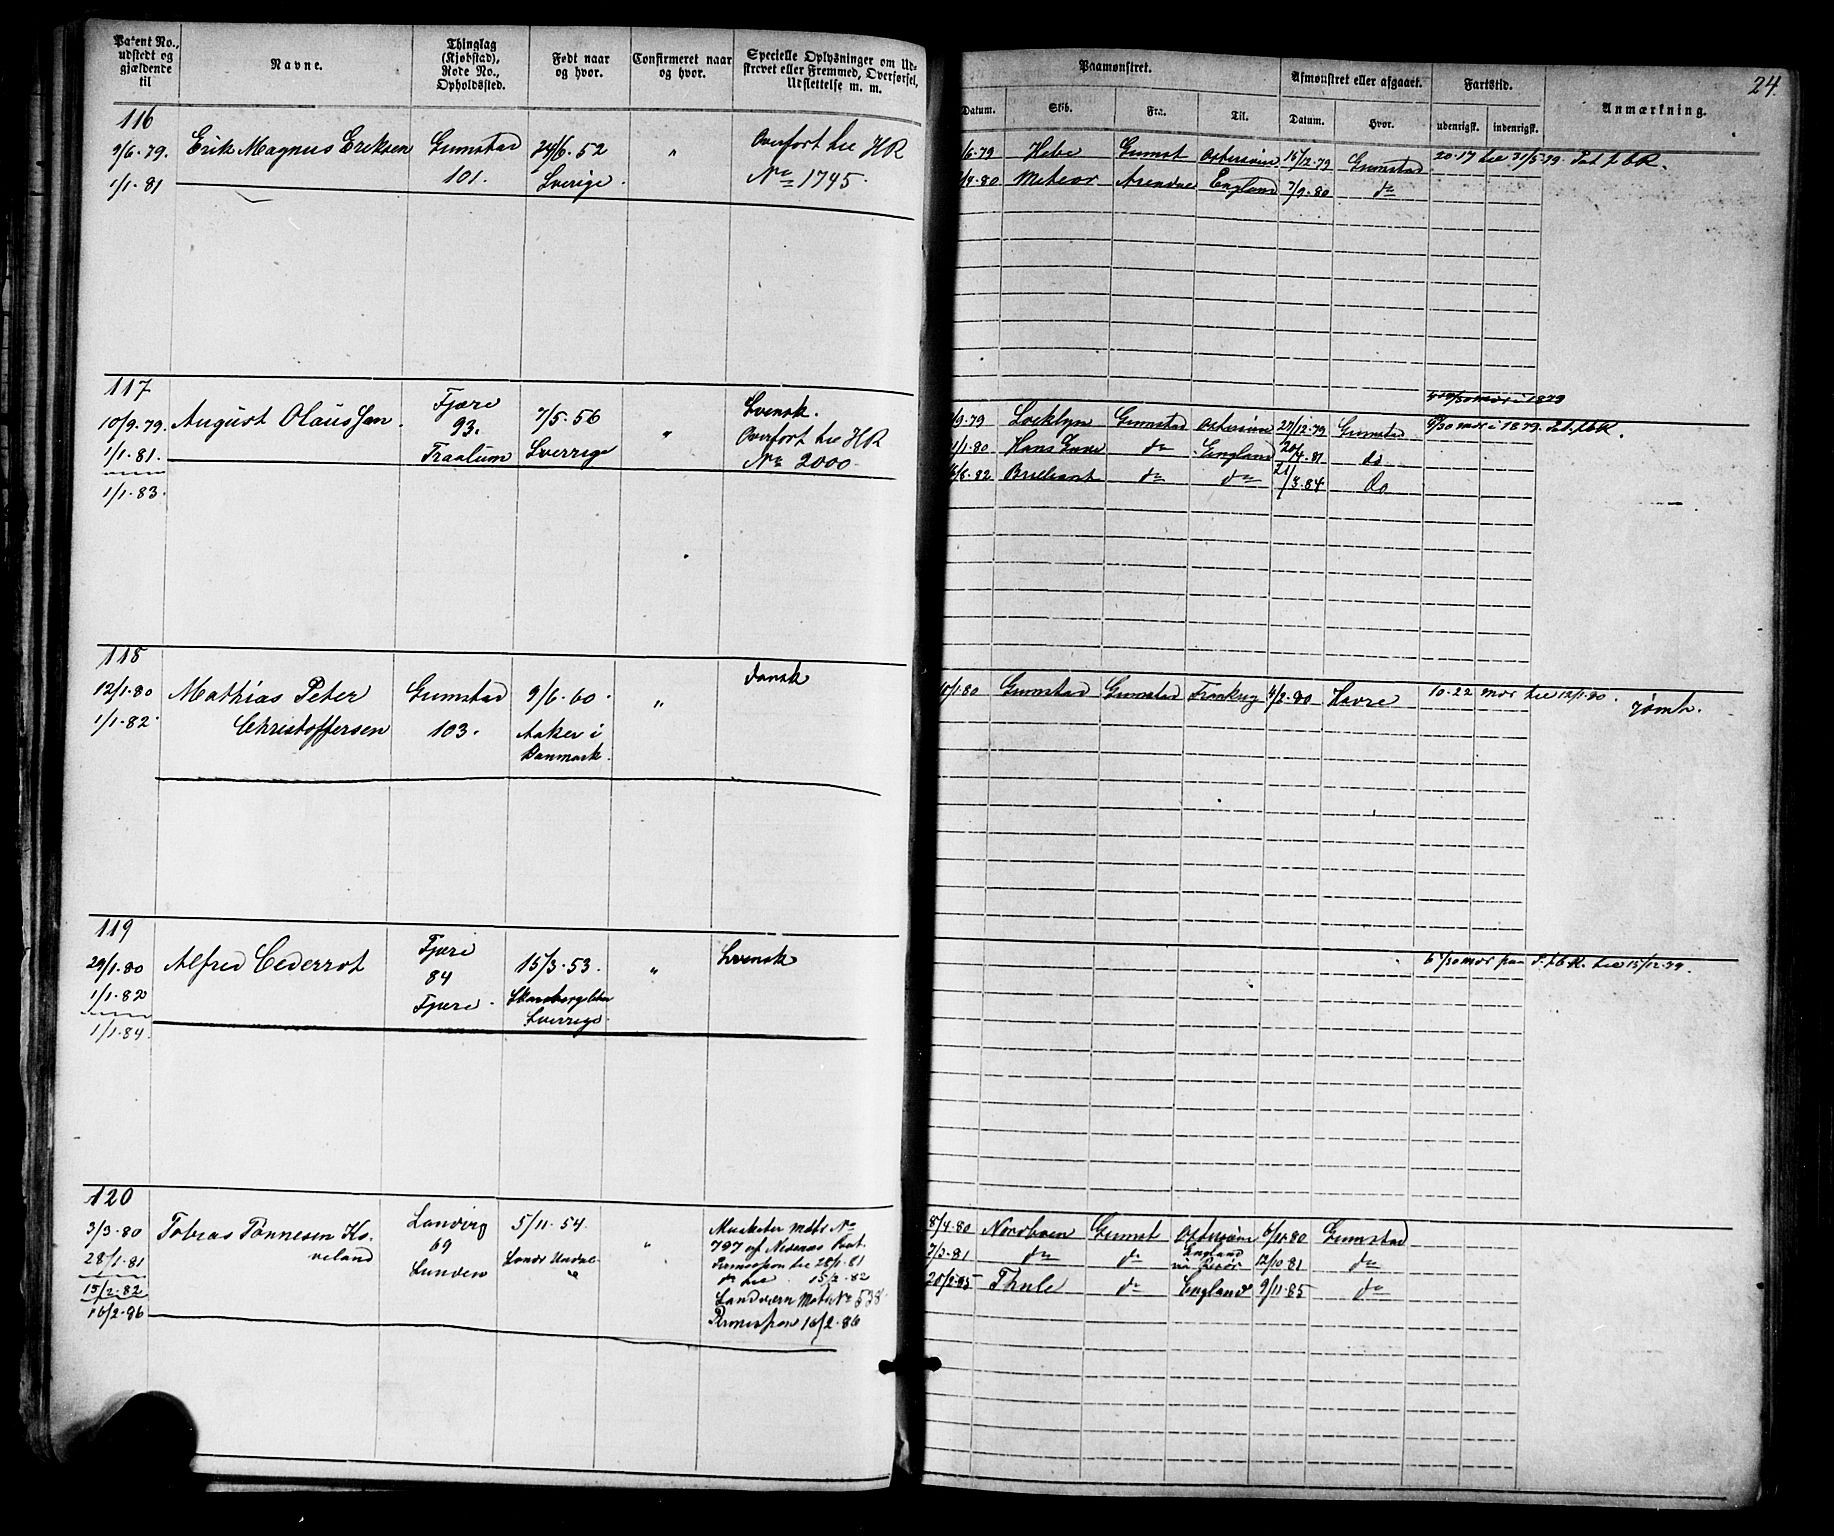 Patent No., udstedt og gjældende til
Navne.
Thinglag (Kjøbstad), Rode No., Opholdssted.
Født naar og hvor.
Confirmeret naar og hvor.
Specielle Oplysninger om Udskrevet eller Fremmed, Overførsel, Udslettelse m. m.
Paamønstret.
Afmønstret eller afgaaet.
Fartstid.
Anmærkning.
24
Datum.
Skib.
Fra.
Til.
Datum.
Hvor.
udenrigst.
indenrigst.
116
9/6.79.
1/1.81
Erik Magnus Eriksen
Grimstad
101.
24/6.52
Sverige.
"
Overført til HR
No 1745.
/6.79 Hebe Grimst Østersøen 15/12.79 Grimstad 20.17 til 31/5.79.
/4.80 Meteor Arendal England 7/9.80 do
117
10/9.79.
1/1.81.
1/1.83.
August Olaussen
Fjære
93.
Traalum
7/5.56
Sverrige
"
Svensk.
Overført til HR
No 2000.
/9.79 Grimstad Østersøen 27/12.79 Grimstad
1/1.80 Hans do England 20/4.81 do
/8.82 Brilliant do do 21/3.84 do
118
12/1.80
1/1.82.
Mathias Peter
Christoffersen
Grimstad
103.
9/6.60.
Aaker i
Danmark.
"
Dansk
10/1.80 Grimstad Grimstad Frankrig 4/2.80 Havre 10.22 mdr til 12/1.80. rømt.
119
29/1.80
1/1.82
1/1.84.
Alfred Cederrot
Fjære
84
Fjære.
15/3.53.
Sverrige.
"
Svensk
120
3/3.80
28/1.81
15/2.82
16/2.86
Tobias Tønnesen Ko-
veland
Landvig
69
Lunden
5/11.54.
"
Musketer Mdbr No
797 af Nedenæs Bat.
Permission til 28/1.81
do til 15/2.82
Landværn Mdbr No 538.
Permission 16/2.86
8/4.80 Nordboen Grimst Østersøen 6/11.80 Grimstad
7/3.81 do do England 12/10.81 do
20/2.85 Thule do England 9/11.85 do